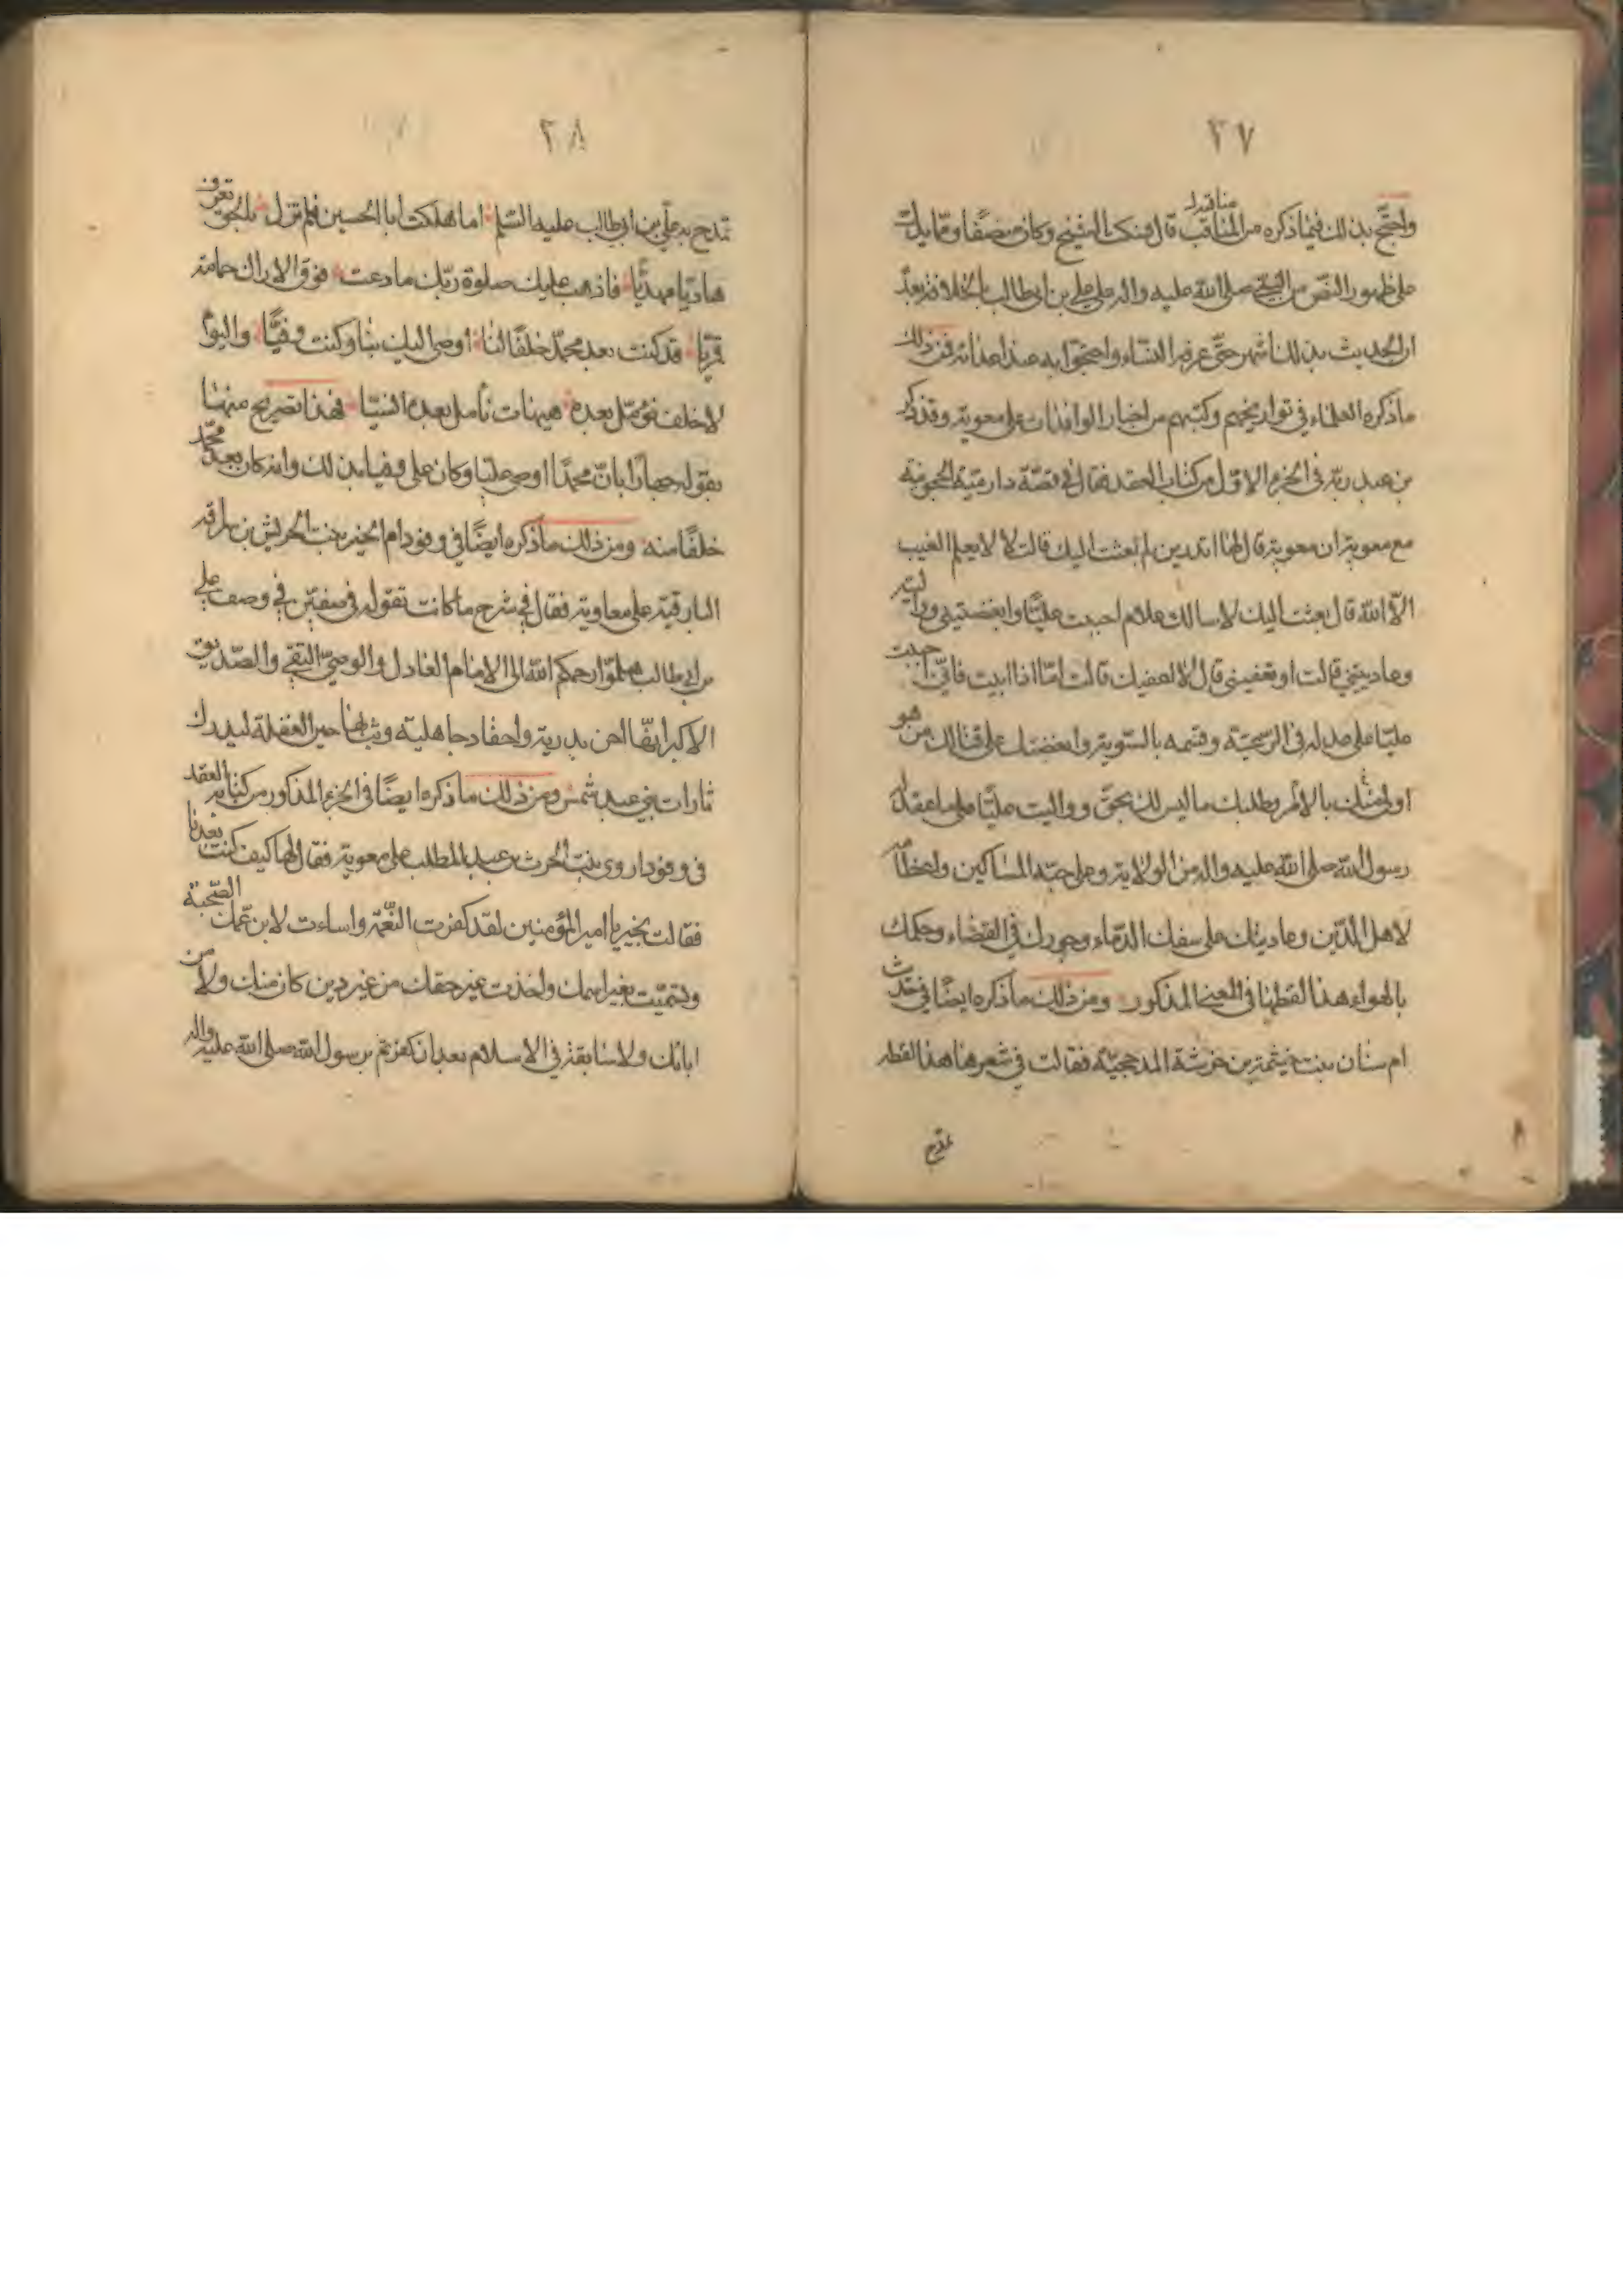 ٢٧
مناقبه
واحتج بذلك فيما ذكره من المناقب قال فنكت الشيخ وكان منصفا ومما يدلك
على ظهور النص من النبي صلى الله عليه واله على علي بن ابي طالب بالخلافة بعده
ان الحديث بذلك اشتهر حتى عرفه النساء واحتجوا به عند اعدائه فمن ذلك
ما ذكره العلماء في تواريخهم وكتبهم من اخبار الوافدات على معوية وقد ذكر
بن عبد ربه في الجزء الاول من كتاب العقد فقال في قصة دارمية الحجونية
مع معوية ان معوية قال لها اتدرين لم بعثت اليك قالت لا لا يعلم الغيب
الا الله قال بعثت اليك لاسالك علام احببت عليا وابغضتيني وواليته
وعاديتني قالت او تعفيني قال لا اعفيك قالت اما اذا ابيت فاني احببت
عليا على عدله في الرعية وقسمه بالسوية وابغضتك على قتالك من هو
اولى منك بالامر وطلبك ما ليس لك بحق وواليت عليا على ما عقد له
رسول الله صلى الله عليه واله من الولاية وعلى حبه المساكين واعظامه
لاهل الدين وعاديتك على سفك الدماء وجورك في القضاء وحكمك
بالهواء هذا لفظها في المعنى المذكور ومن ذلك ما ذكره ايضا في حديث
ام سنان بنت خيثمة بن خرشة المدحجية فقالت في شعرها هذا لفظه
تمدح
٢٨
تمدح به علي بن ابي طالب عليه السلم اما هلكت ابا الحسين فلم تزل بالحق تعرف
هاديا مهديا فاذهب عليك صلوة ربك ما دعت فوق الاراك حمامة
قمريا قد كنت بعد محمد خلفا لنا اوصى اليك بنا وكنت وفيا واليوم
لا خلف نؤمل بعده هيهات نامل بعده انسيا فهذا تصريح منها
بقوله جهارا بان محمدا اوصى عليا وكان على وفيا بذلك وانه كان بعد محمد
خلفا منه ومن ذلك ما ذكره ايضا في وفود ام الخير بنت الحريش بن سراقة
البارقية على معاوية فقال في شرح ما كانت تقوله في صفين في وصف علي
بن ابي طالب هلموا رحمكم الله الى الامام العادل والوصي التقي والصديق
الاكبر انها احن بدرية واحقاد جاهلية وثب لها حين الغفلة ليدرك
ثارات بني عبد شمس ومن ذلك ما ذكره ايضا في الجزء المذكور من كتابه العقد
في وفود اروى بنت الحرث بن عبد المطلب على معوية فقال لها كيف كنت بعدنا
فقالت بخير يا امير المؤمنين لقد كفرت النعمة واساءت لابن عمك الصحبة
وتسميت بغير اسمك واخذت غير حقك من غير دين كان منك ولا من
ابائك ولا سابقة في الاسلام بعد ان كفرتم برسول الله صلى الله عليه واله